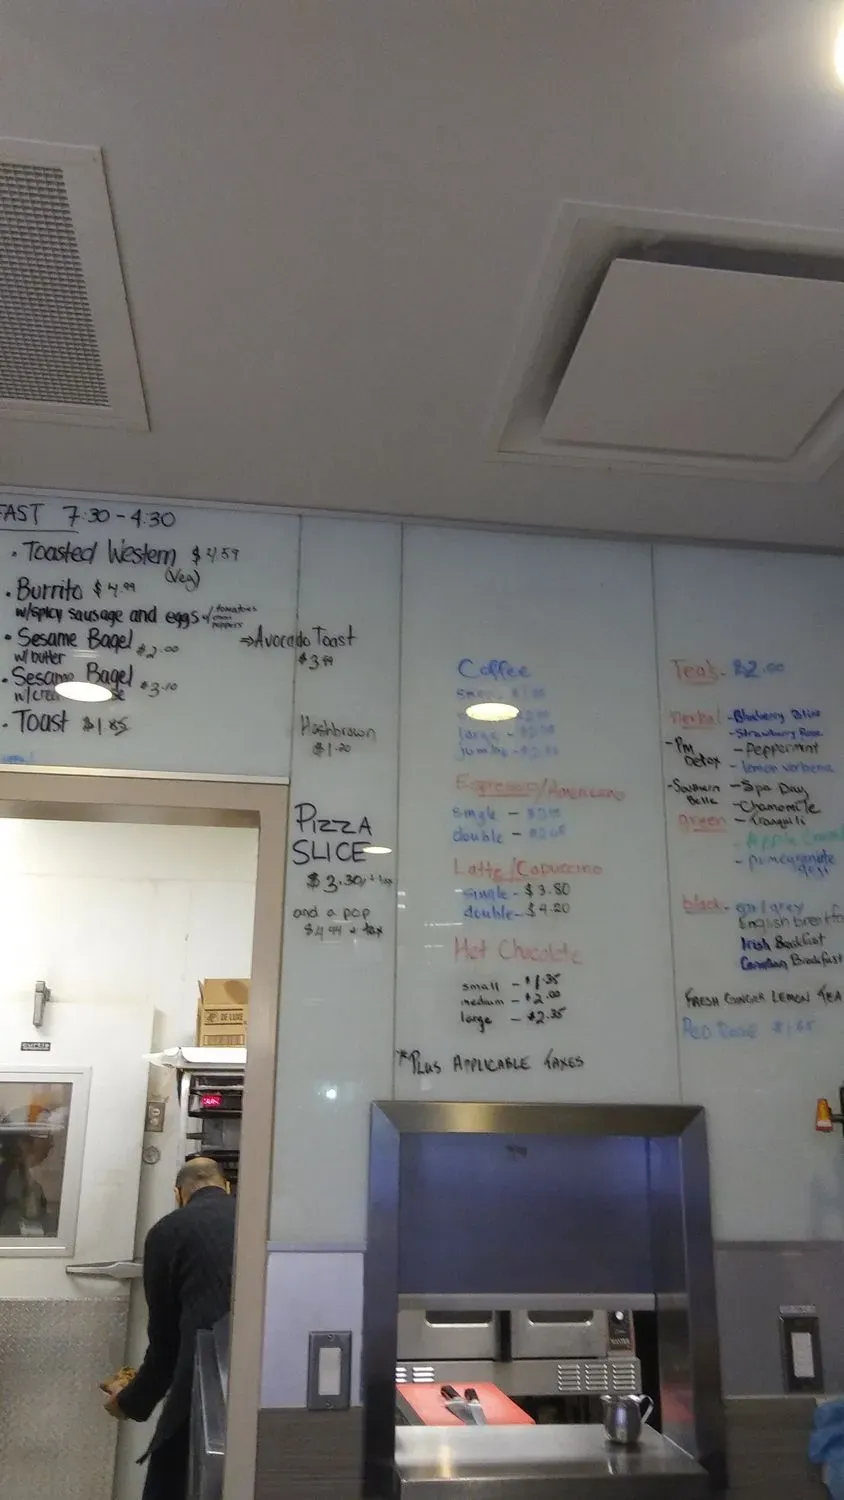 FAST 7:30 - 4:30
• Toasted Western $4.59
(Veg)
• Burrito $4.99
w/spicy sausage and eggs w/ tomatoes
peppers
• Sesame Bagel $2.00
w/butter
• Sesame Bagel $3.10
• Toast $1.85
⇒Avocado Toast
$3.99
Hashbrown
$1.20
PIZZA
SLICE
$3.30
and a pop
$4.99 + tax
Coffee
large -
jumbo -
Espresso/Americano
single -
double -
Latte/Capuccino
single - $3.80
double - $4.20
Hot Chocolate
small - $1.35
medium - $2.00
large - $2.35
*PLUS APPLICABLE TAXES
Teas - $2.00
herbal - Blueberry
- Strawberry Rose
- PM Detox
- Peppermint
- lemon verbena
- Southern Belle
- Spa Day
- Chamomile
green
- Tranquili
- Apple
- pomegranate
goji
black - earl grey
English breakfa
Irish Breakfast
Canadian Breakfast
FRESH GINGER LEMON TEA
RED ROSE $1.65
DE LUXE